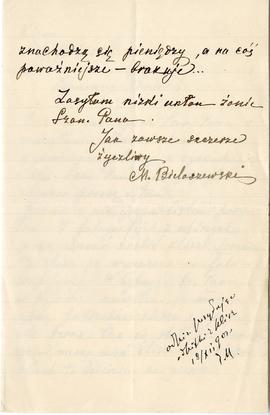 znachodzą się pieniędzy, a na coś
poważniejsze – brakuje...
Zasyłam nizki ukłon żonie
Szan. Pana.
Jak zawsze szczerze
życzliwy
M. Bieloszewski